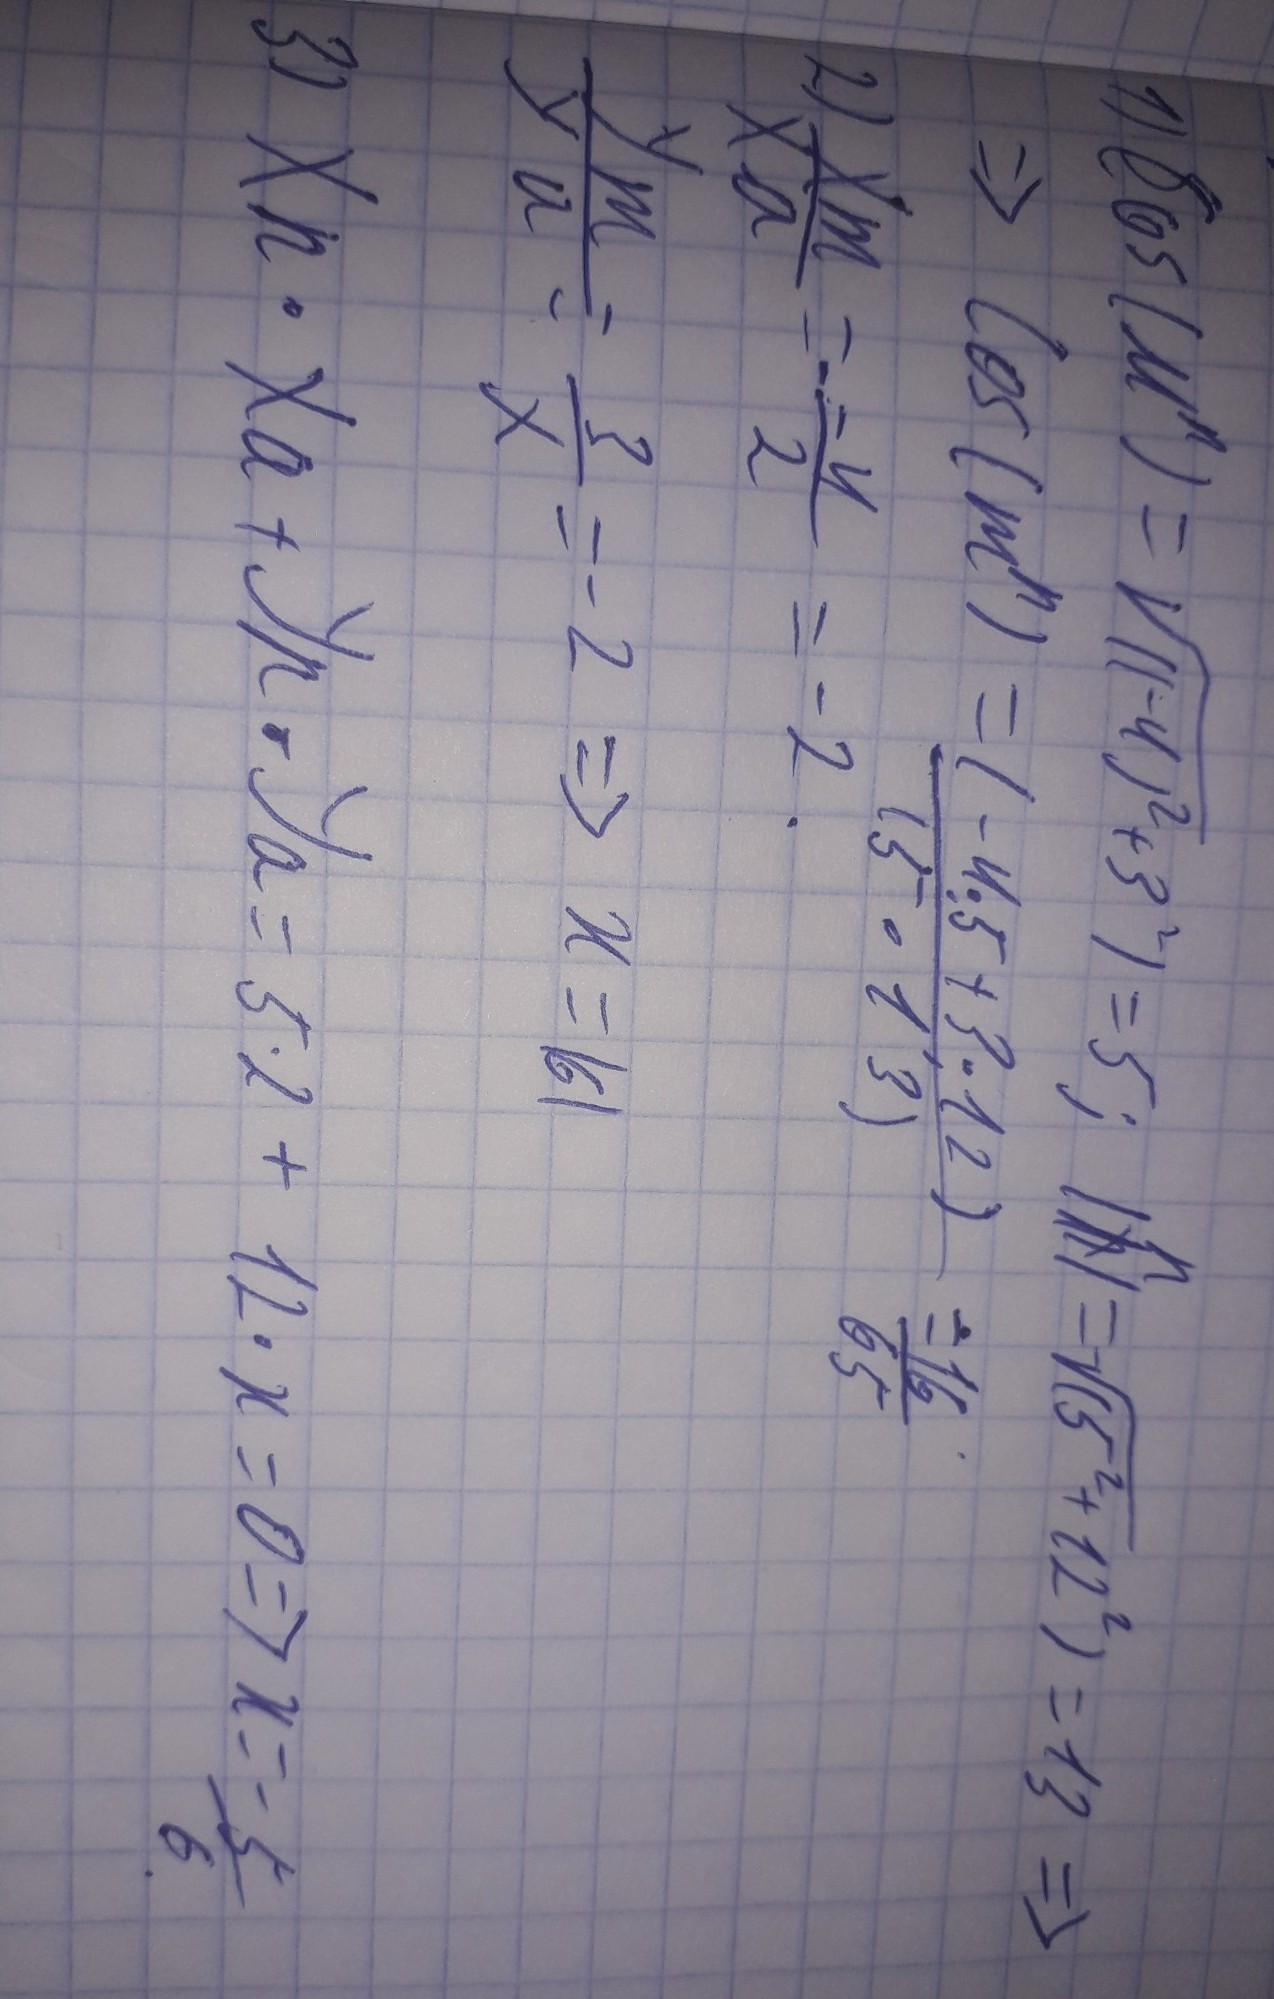 1) Cos(m^n) = √((-4)²+3²) = 5; |n| = √(5²+12²) = 13 =>
=> Cos(m^n) = (-4·5+3·12)/(5·13) = 16/65.
2) Xm/Xa = -4/2 = -2.
Ym/Ya = 3/x = -2 => x = |6|
3) Xn · Xa + Yn · Ya = 5·2 + 12·x = 0 => x = -5/6.